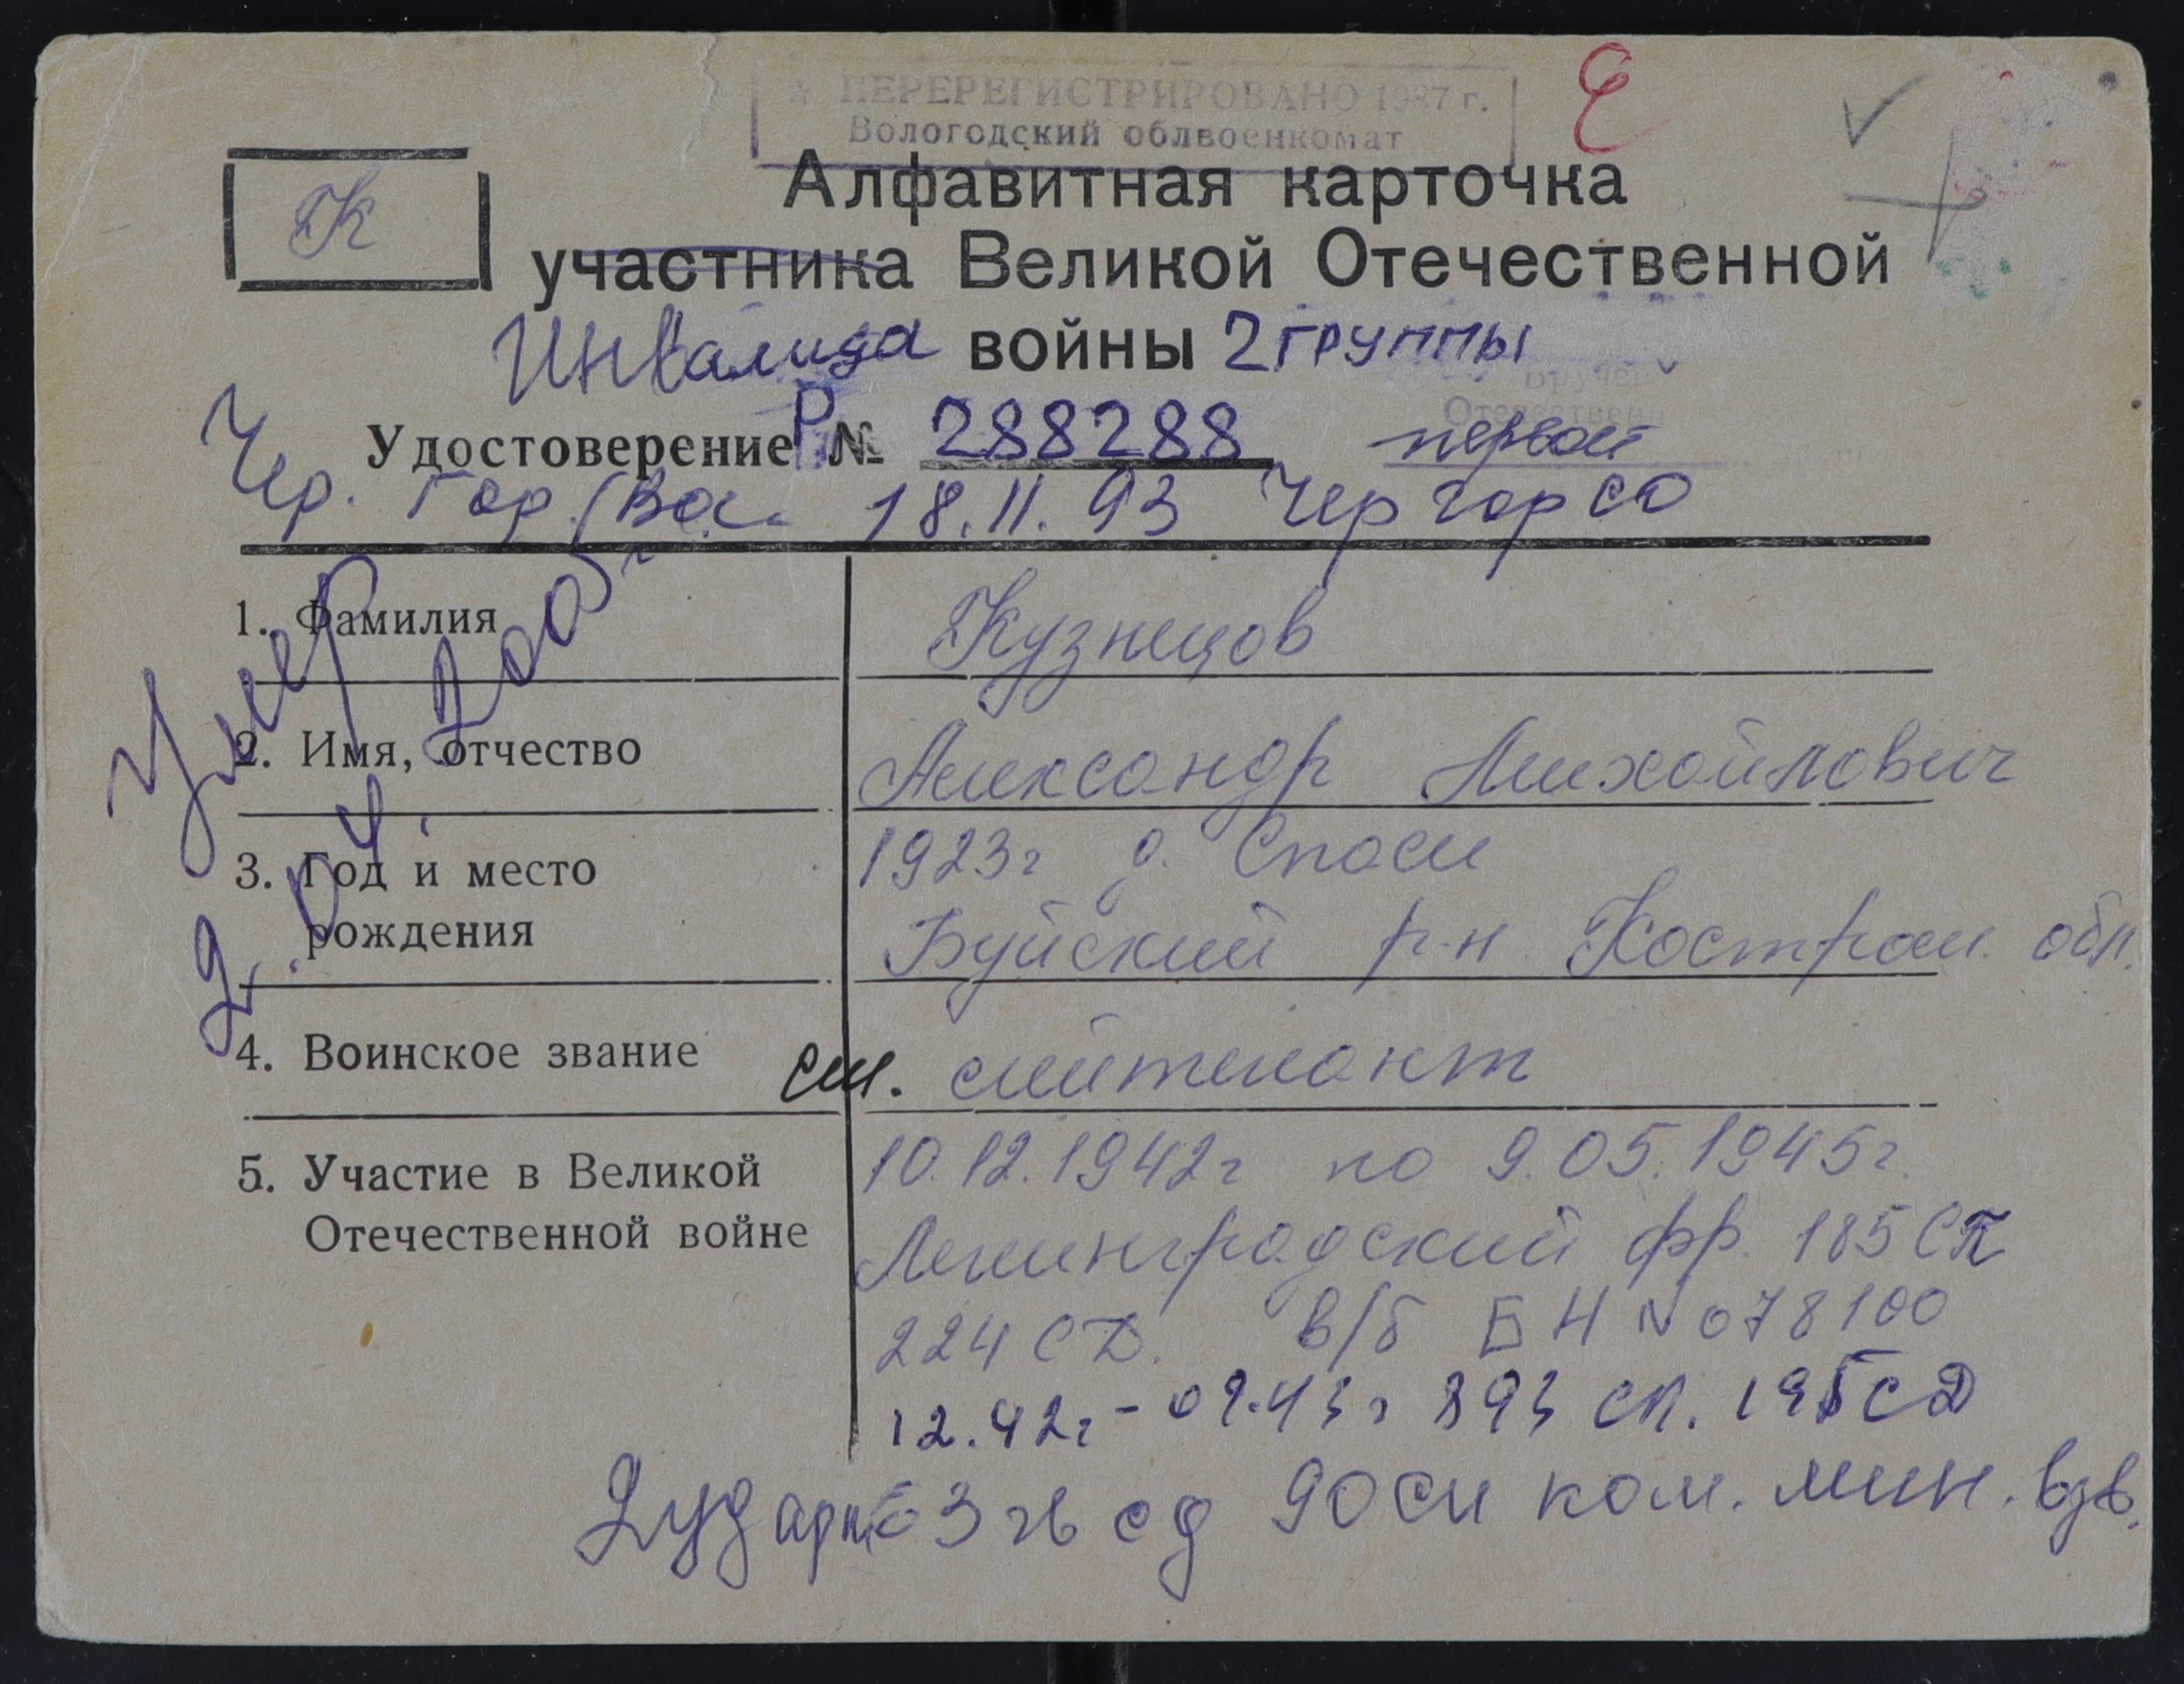 ПЕРЕРЕГИСТРИРОВАНО 1987 г.
Вологодский облвоенкомат
К
Алфавитная карточка
участника Великой Отечественной
Инвалида войны 2 группы
Удостоверение Р № 288288 первой
Чер. Гор. 18.11.93 Чер гор СО
Умер
1. Фамилия Кузнецов
2. Имя, отчество Александр Михайлович
3. Год и место рождения 1923г д. Спасм
Буйский р-н Костром. обл.
4. Воинское звание ст. лейтенант
5. Участие в Великой Отечественной войне 10.12.1942г по 9.05.1945г.
Ленинградский фр. 185 СП
224 СД. в/б БН № 078100
12.42г - 09.43г 893 сп. 195 СД
2 ударн 63 гв сд 90 сп ком. мин. взв.